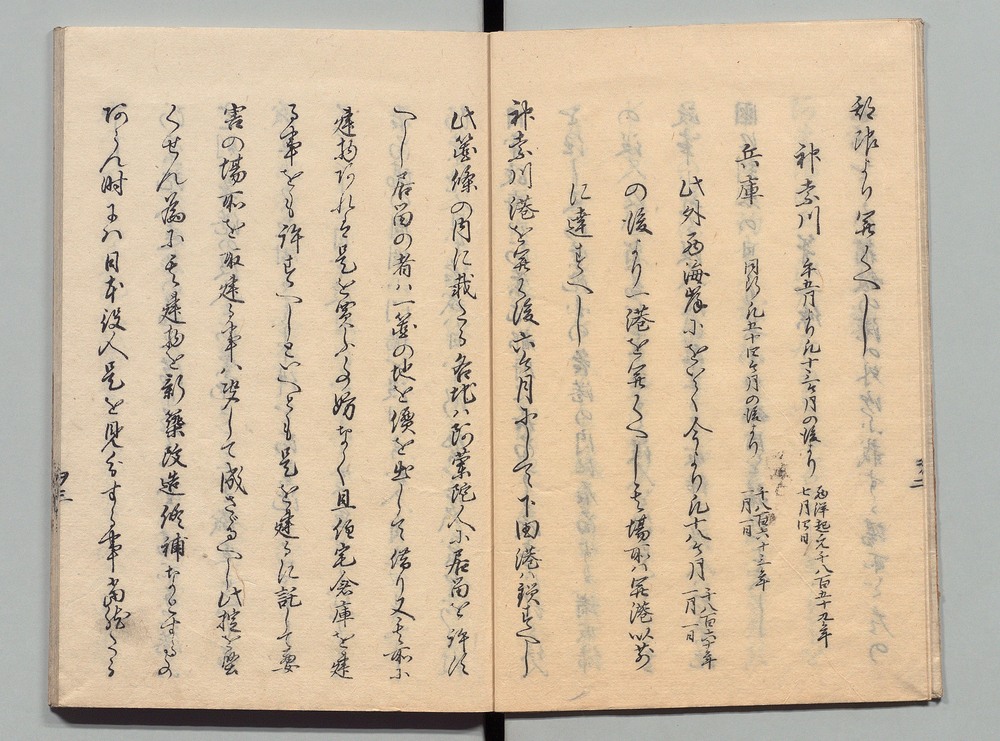 期限より開くへし
神奈川 午三月より凡十三ヶ月の後より 西洋紀元千八百五十九年
七月四日
兵庫 同断凡五十四ヶ月の後より 千八百六十三年
一月一日
此外西海岸におゐて今より凡十八ヶ月 千八百六十年
一月一日
の後より一港を開くへし其場所ハ開港以前
に達すへし
神奈川港を開く後六ヶ月にして下田港ハ鎖すへし
此箇條の内に載たる各地ハ阿蘭陀人に居留を許すへ
へし居留の者ハ一箇の地を價を出して借り又其所に
建物あれは是を買ふ事妨なく且住宅倉庫を建
る事をも許すへしといへとも是を建るに託して要
害の場所を取建る事ハ決して成さゝるへし此掟を堅
くせん為に其建物を新築改造修補なとする事
あらん時にハ日本役人是を見分する事当然たる